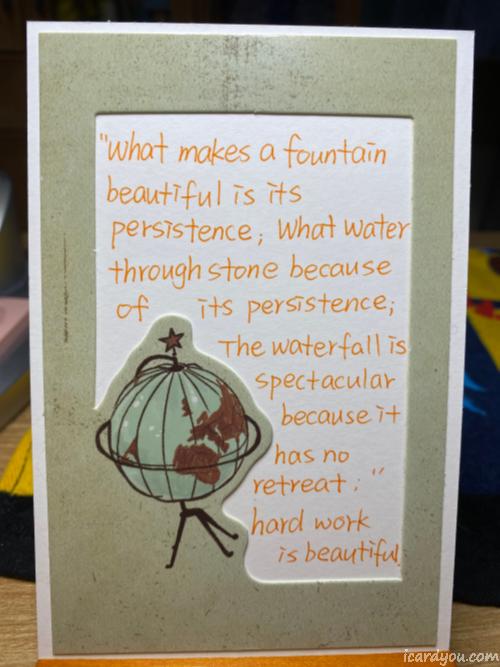 "What makes a fountain
beautiful is its
persistence; What water
through stone because
of its persistence;
The waterfall is
spectacular
because it
has no
retreat."
hard work
is beautiful.
icardyou.com